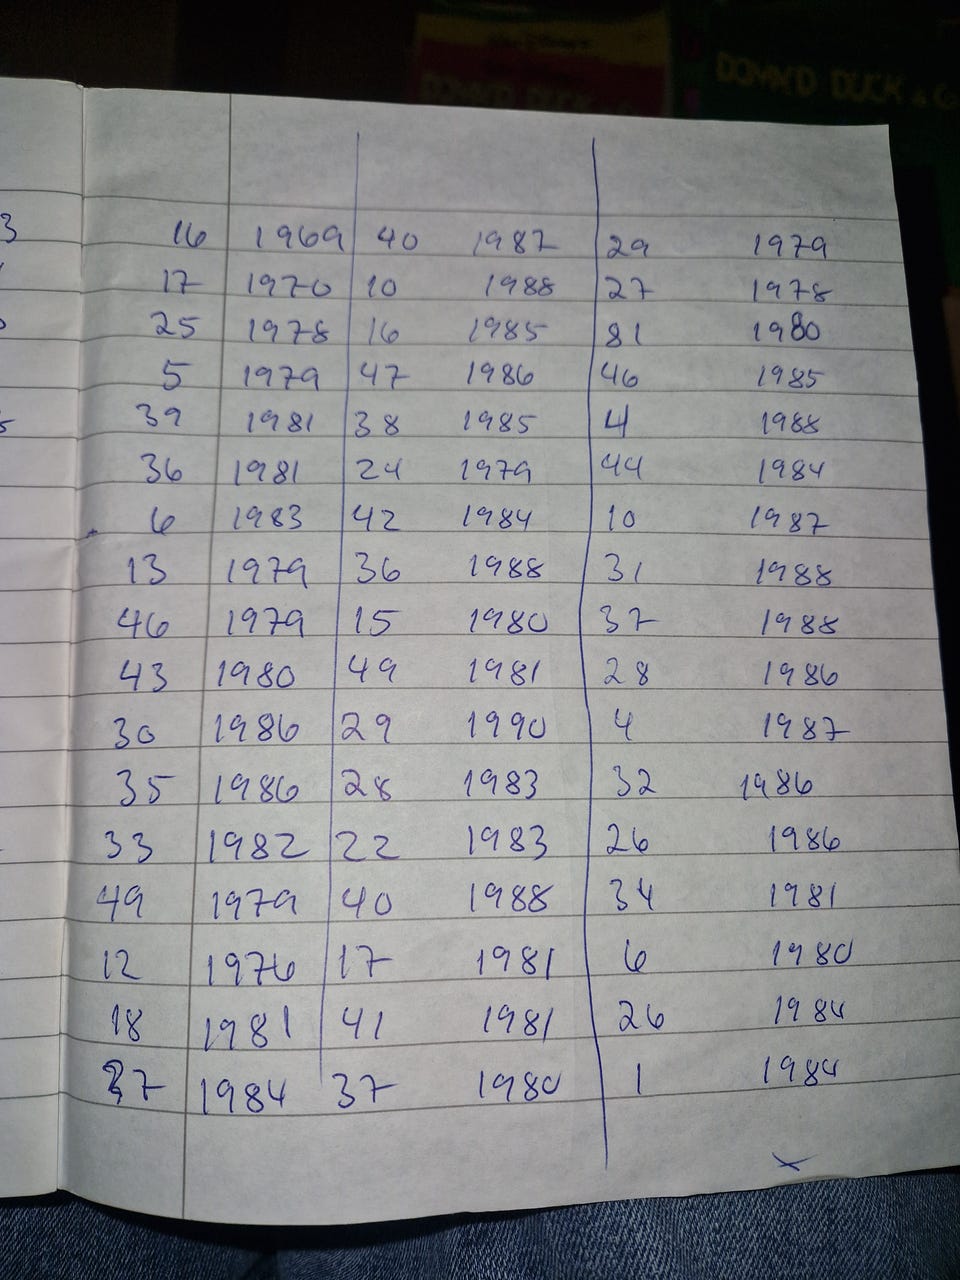 DONALD DUCK & Co
DONALD DUCK & Co
16 1969 40 1987 29 1979
17 1970 10 1988 27 1978
25 1978 16 1985 81 1980
5 1979 47 1986 46 1985
39 1981 38 1985 4 1988
36 1981 24 1979 44 1984
6 1983 42 1984 10 1987
13 1979 36 1988 31 1988
46 1979 15 1980 37 1988
43 1980 49 1981 28 1986
30 1986 29 1990 4 1987
35 1986 28 1983 32 1986
33 1982 22 1983 26 1986
49 1979 40 1988 34 1981
12 1976 17 1981 6 1980
18 1981 41 1981 26 1984
37 1984 37 1980 1 1984